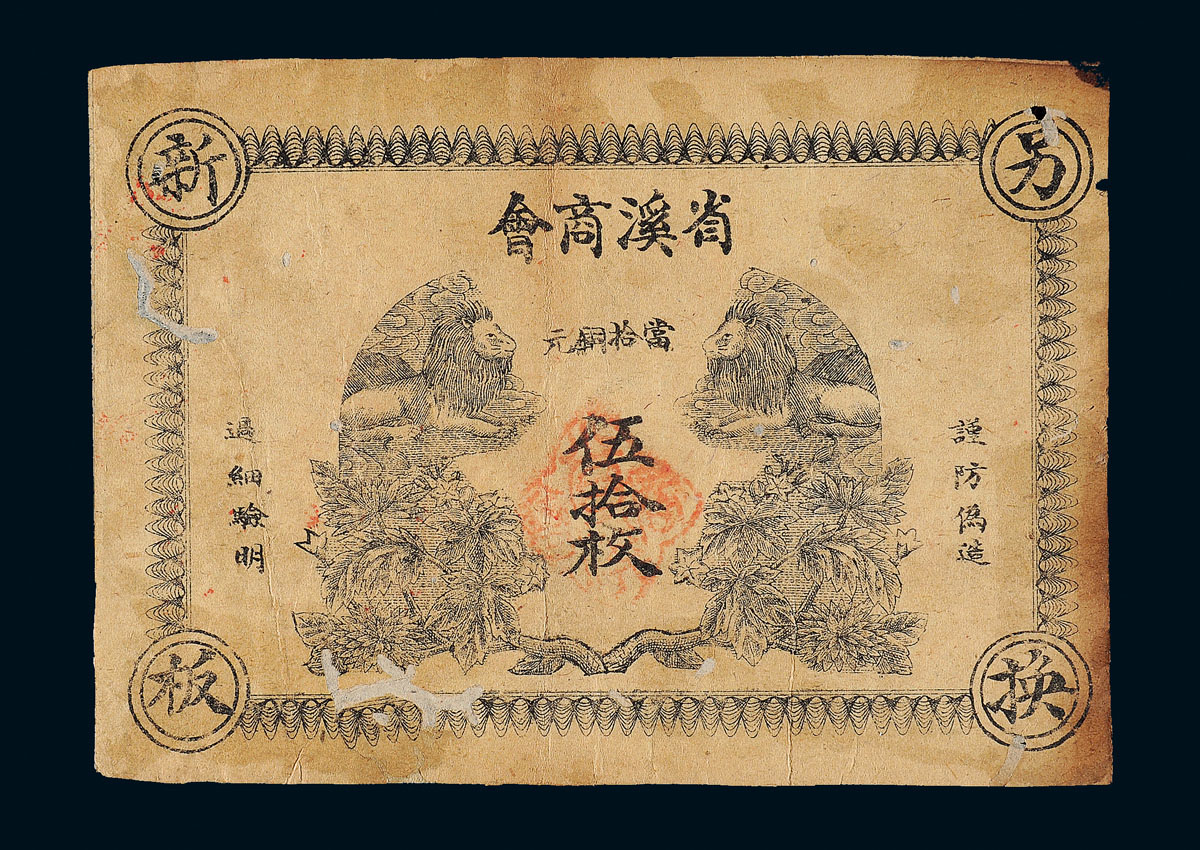 另換新板
省溪商會
當拾銅元
伍拾枚
謹防偽造
過細驗明